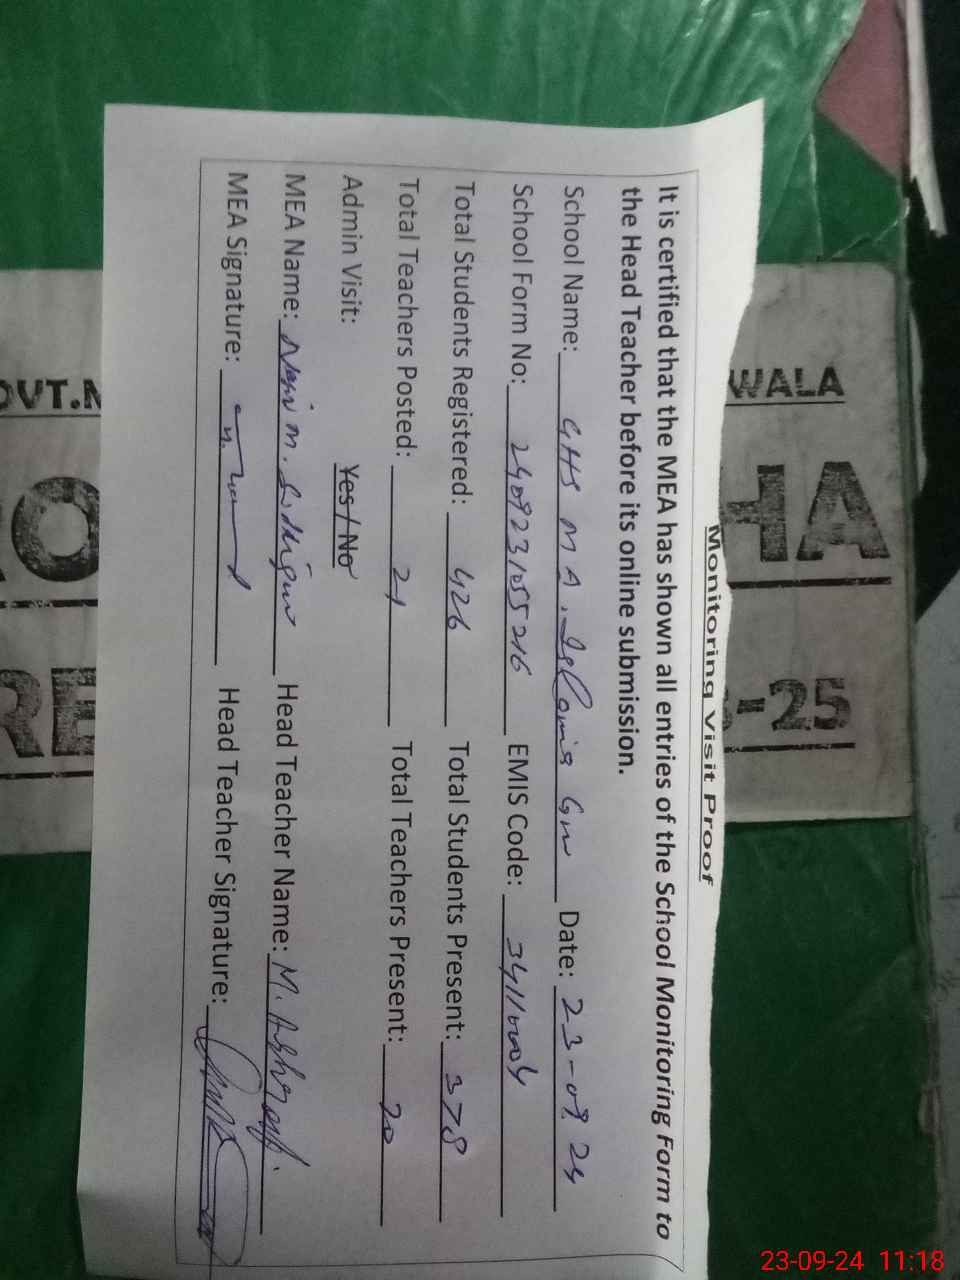 Monitoring Visit Proof
It is certified that the MEA has shown all entries of the School Monitoring Form to
the Head Teacher before its online submission.
School Name: GHS M A. Islamia Grw Date: 23-09-24
School Form No: 2409231055216 EMIS Code: 34110004
Total Students Registered: 426 Total Students Present: 378
Total Teachers Posted: 21 Total Teachers Present: 20
Admin Visit: Yes/No
MEA Name: M. Head Teacher Name: M. Ashraf.
MEA Signature: Head Teacher Signature:
WALA
HA
-25
OVT.M
RO
RE
23-09-24 11:18